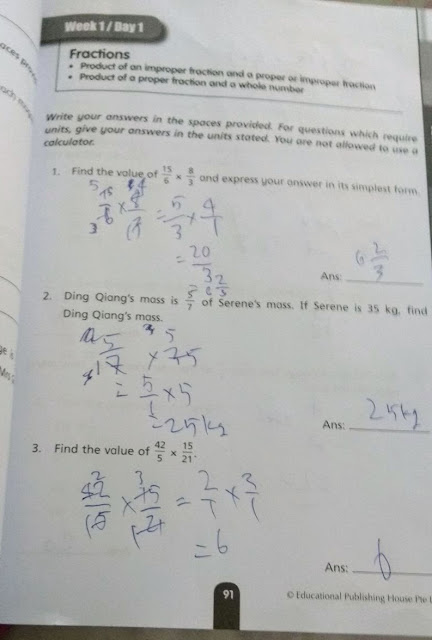 Week 1 / Day 1
Fractions
• Product of an improper fraction and a proper or improper fraction
• Product of a proper fraction and a whole number
Write your answers in the spaces provided. For questions which require
units, give your answers in the units stated. You are not allowed to use a
calculator.
1. Find the value of 15/6 × 8/3 and express your answer in its simplest form.
= 5/3 × 4/1
= 20/3
Ans: 6 2/3
2. Ding Qiang's mass is 5/7 of Serene's mass. If Serene is 35 kg, find
Ding Qiang's mass.
= 5/1 × 5
= 25kg
Ans: 25kg
3. Find the value of 42/5 × 15/21.
42/5 × 15/21 = 2/1 × 3/1
= 6
Ans: 6
91
© Educational Publishing House Pte